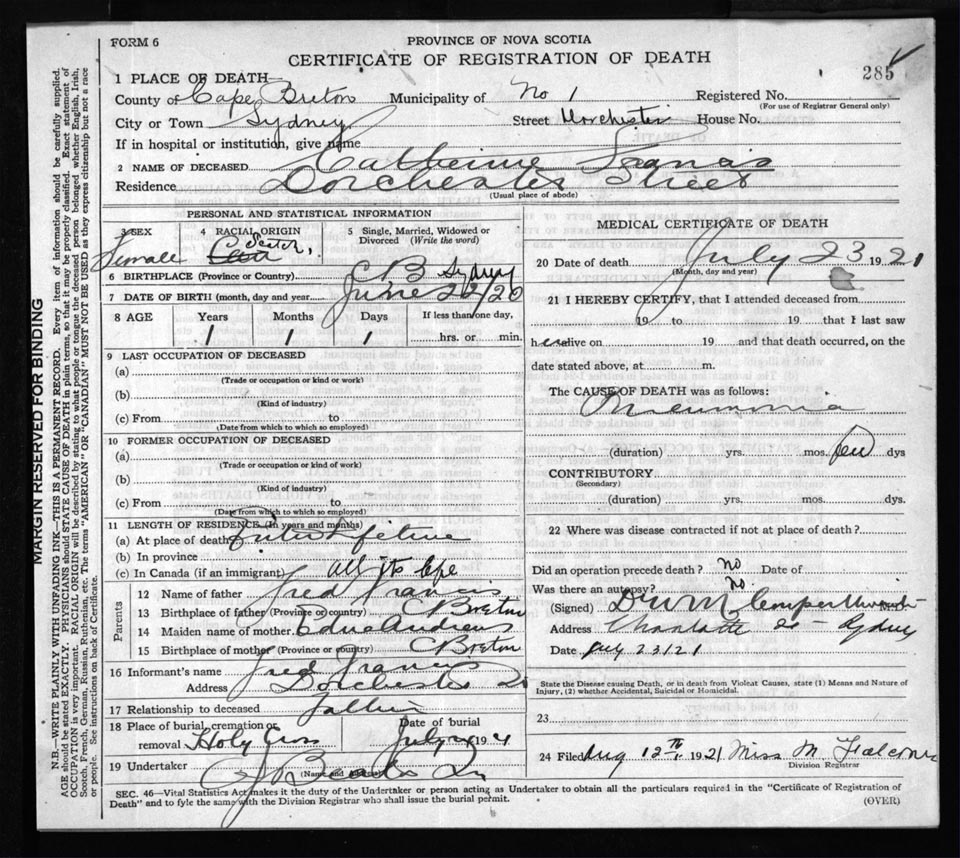 FORM 6
PROVINCE OF NOVA SCOTIA
CERTIFICATE OF REGISTRATION OF DEATH
285
1 PLACE OF DEATH
County of Cape Breton Municipality of No 1 Registered No.
(For use of Registrar General only)
City or Town Sydney Street Dorchester House No.
If in hospital or institution, give name
2 NAME OF DECEASED Catherine Francis
Residence Dorchester Street
(Usual place of abode)
PERSONAL AND STATISTICAL INFORMATION
3 SEX 4 RACIAL ORIGIN 5 Single, Married, Widowed or
Divorced (Write the word)
Female Scotch
6 BIRTHPLACE (Province or Country) CB Sydney
7 DATE OF BIRTH (month, day and year) June 22/20
8 AGE Years Months Days If less than one day,
1 1 1 hrs. or min.
9 LAST OCCUPATION OF DECEASED
(a)
(Trade or occupation or kind of work)
(b)
(Kind of industry)
(c) From to
(Date from which to which so employed)
10 FORMER OCCUPATION OF DECEASED
(a)
(Trade or occupation or kind of work)
(b)
(Kind of industry)
(c) From to
(Date from which to which so employed)
11 LENGTH OF RESIDENCE (In years and months)
(a) At place of death Entire lifetime
(b) In province
(c) In Canada (if an immigrant) all its life
Parents
12 Name of father Fred Francis
13 Birthplace of father (Province or country) C Breton
14 Maiden name of mother Edna Andrews
15 Birthplace of mother (Province or country) C Breton
16 Informant's name Fred Francis
Address Dorchester St
17 Relationship to deceased father
18 Place of burial, cremation or removal Holy Cross Date of burial July 192
19 Undertaker
(Name and address)
MEDICAL CERTIFICATE OF DEATH
20 Date of death July 23 1921
(Month, day and year)
21 I HEREBY CERTIFY, that I attended deceased from
19 to 19 that I last saw
her alive on 19 and that death occurred, on the
date stated above, at m.
The CAUSE OF DEATH was as follows:
Pneumonia
(duration) yrs. mos. few dys
CONTRIBUTORY
(Secondary)
(duration) yrs. mos. dys.
22 Where was disease contracted if not at place of death?
Did an operation precede death? No Date of
Was there an autopsy? No
(Signed) Dr W M
Address Charlotte St Sydney
Date July 23/21
State the Disease causing Death, or in death from Violent Causes, state (1) Means and Nature of
Injury, (2) whether Accidental, Suicidal or Homicidal.
23
24 Filed Aug 12th 1921 Miss M.
Division Registrar
SEC. 46—Vital Statistics Act makes it the duty of the Undertaker or person acting as Undertaker to obtain all the particulars required in the "Certificate of Registration of
Death" and to fyle the same with the Division Registrar who shall issue the burial permit.
(OVER)
MARGIN RESERVED FOR BINDING
N.B.—WRITE PLAINLY WITH UNFADING INK—THIS IS A PERMANENT RECORD. Every item of information should be carefully supplied.
AGE should be stated EXACTLY. PHYSICIANS should STATE CAUSE OF DEATH in plain terms, so that it may be properly classified. Exact statement of
OCCUPATION is very important. RACIAL ORIGIN will be described by stating to what people or tongue the deceased person belonged whether English, Irish,
Scotch, French, German, Russian, Ruthenian, etc. The terms "AMERICAN" OR "CANADIAN" MUST NOT BE USED as they express citizenship but not a race
or people. See instructions on back of Certificate.